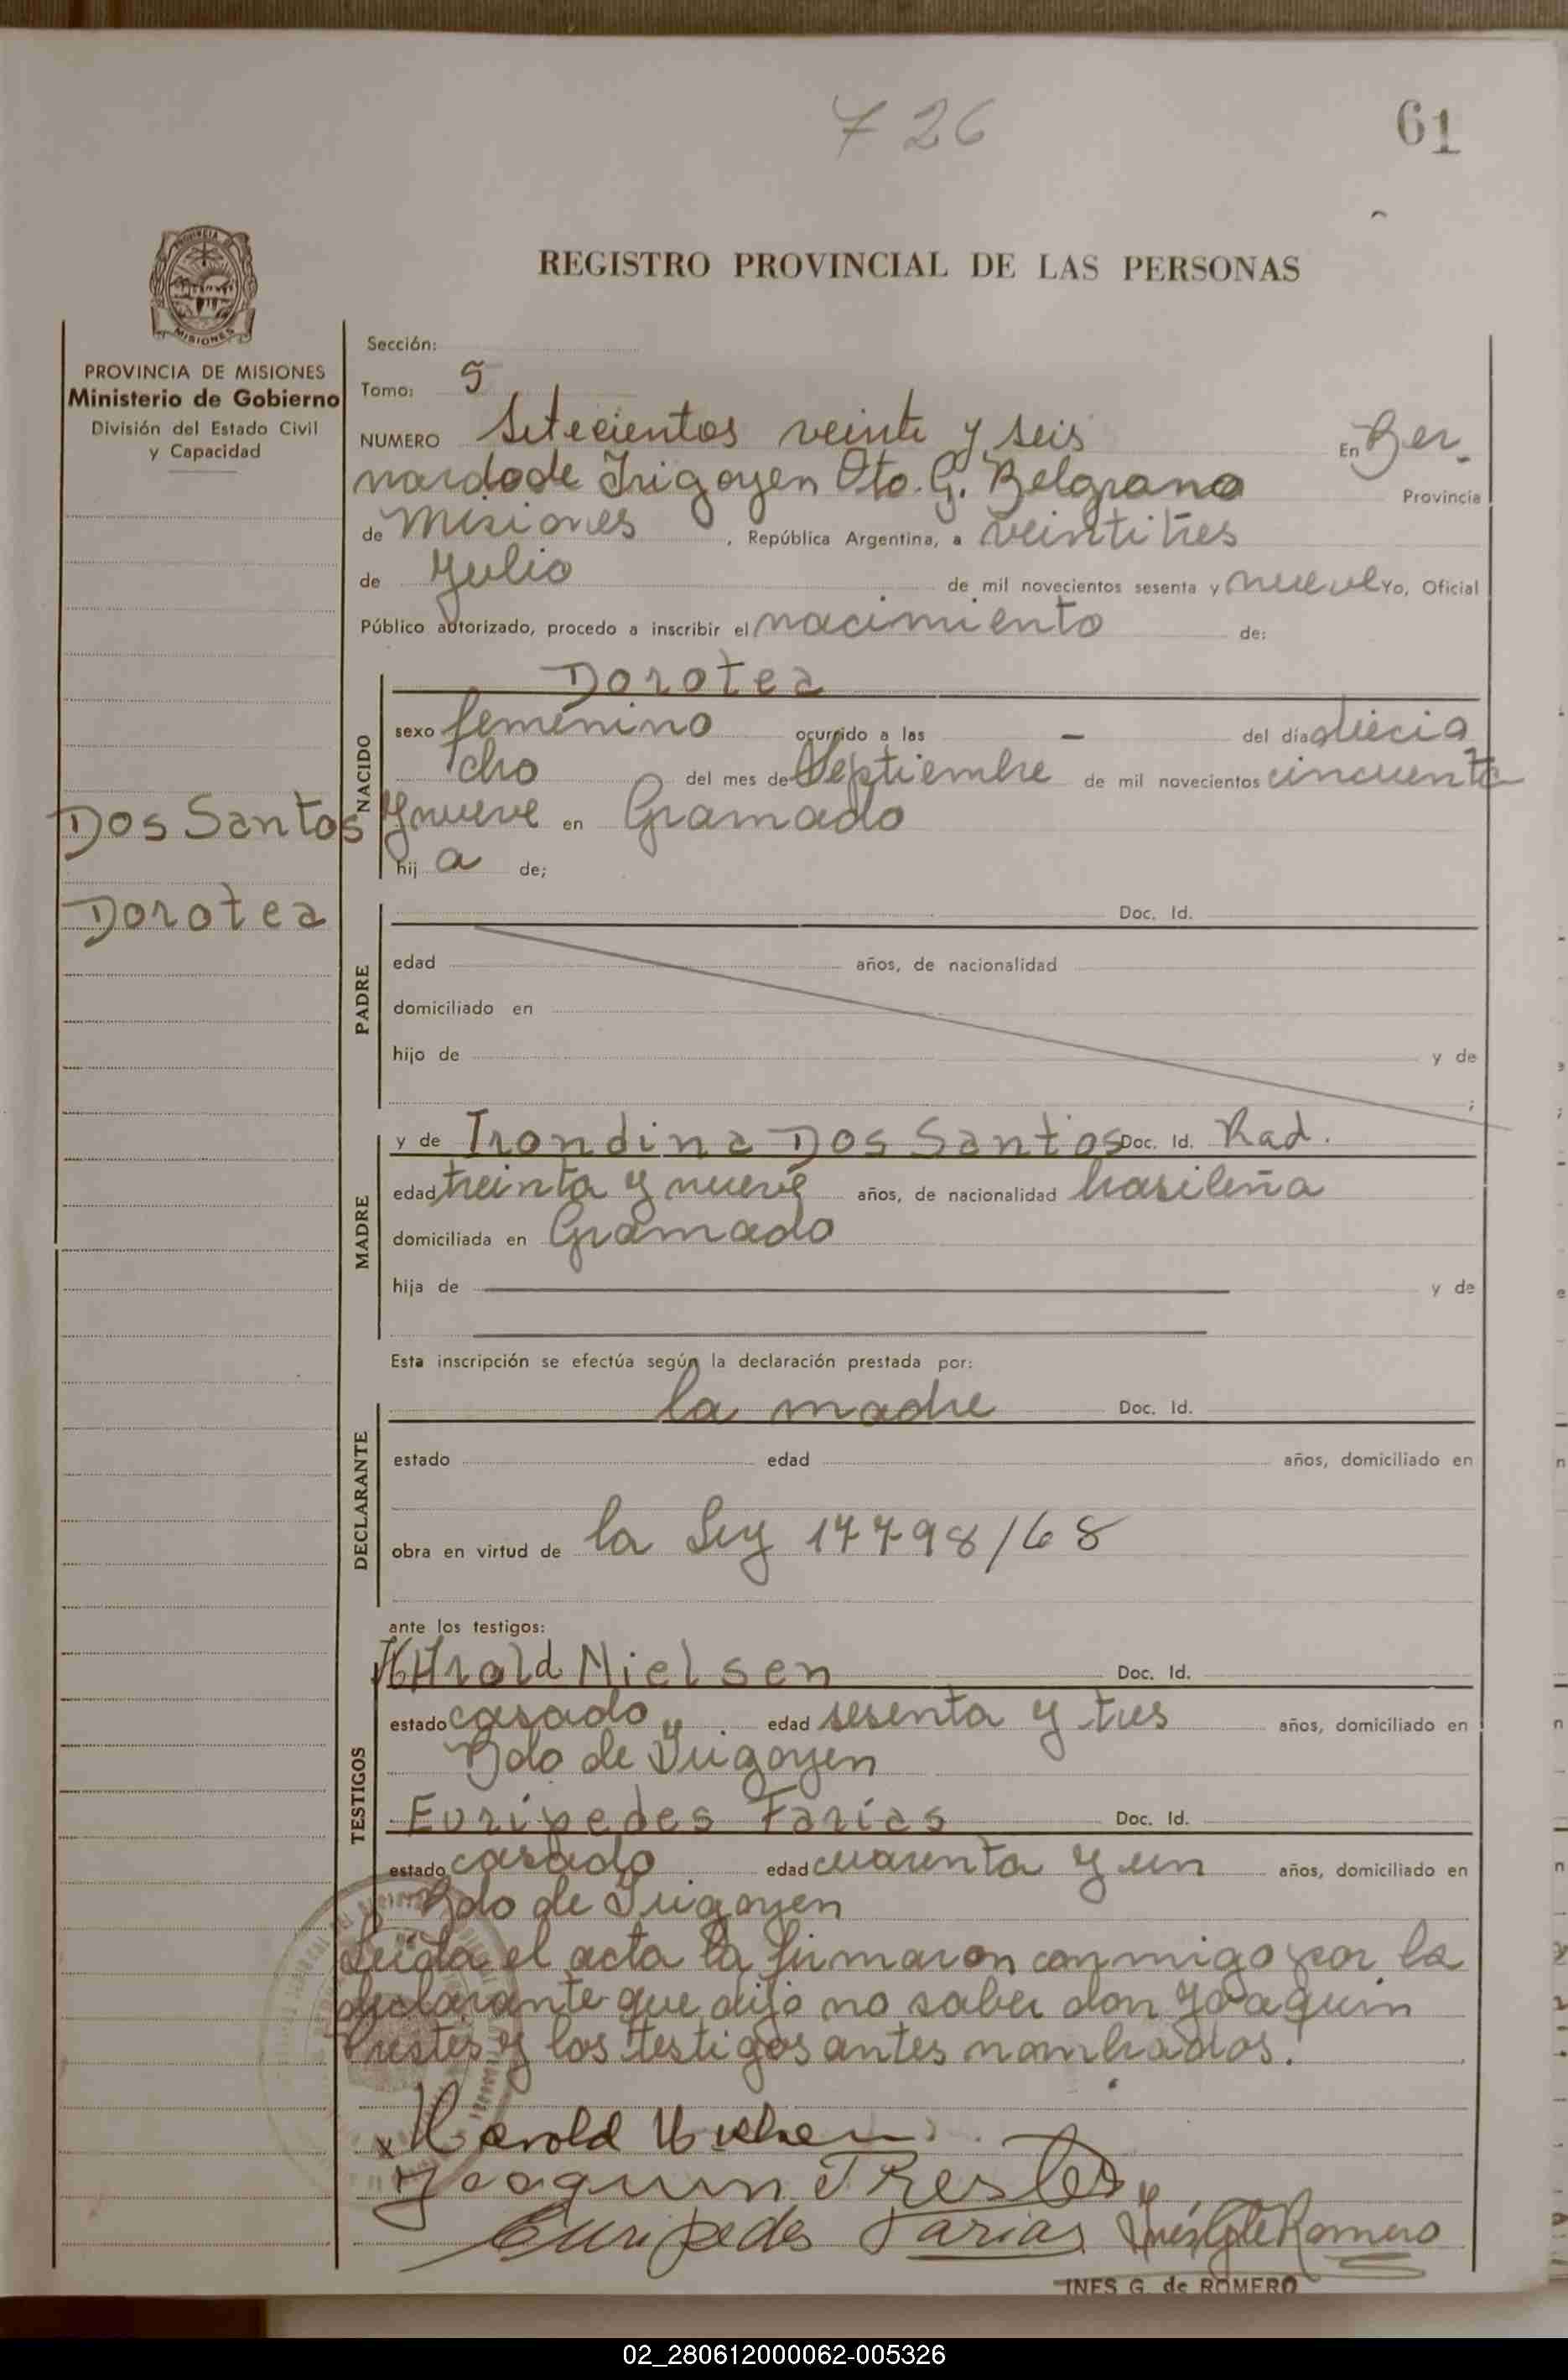 726
61
REGISTRO PROVINCIAL DE LAS PERSONAS
PROVINCIA DE
MISIONES
PROVINCIA DE MISIONES
Ministerio de Gobierno
División del Estado Civil
y Capacidad
Dos Santos
Dorotea
Sección:
Tomo: 5
NUMERO Setecientos veinte y seis En Ber-
nardo de Irigoyen Dto. G. Belgrano Provincia
de Misiones, República Argentina, a veintitres
de Julio de mil novecientos sesenta y nueve Yo, Oficial
Público autorizado, procedo a inscribir el nacimiento de:
NACIDO
Dorotea
sexo femenino ocurrido a las — del día diecio
cho del mes de Septiembre de mil novecientos cincuenta
y nueve en Gramado
hij a de;
PADRE
Doc. Id.
edad años, de nacionalidad
domiciliado en
hijo de y de
;
MADRE
y de Irondina Dos Santos Doc. Id. Rad.
edad treinta y nueve años, de nacionalidad brasileña
domiciliada en Gramado
hija de y de
Esta inscripción se efectúa según la declaración prestada por:
DECLARANTE
la madre Doc. Id.
estado edad años, domiciliado en
obra en virtud de la Ley 17798/68
ante los testigos:
TESTIGOS
Harold Nielsen Doc. Id.
estado casado edad sesenta y tres años, domiciliado en
Bdo de Irigoyen
Euripedes Farias Doc. Id.
estado casado edad cuarenta y un años, domiciliado en
Bdo de Irigoyen
Leida el acta la firmaron conmigo por la
declarante que dijo no saber don Joaquin
Prestes y los testigos antes nombrados.
Harold Nielsen
Joaquin Prestes
Euripedes Farias Inés G de Romero
INES G. de ROMERO
02_280612000062-005326